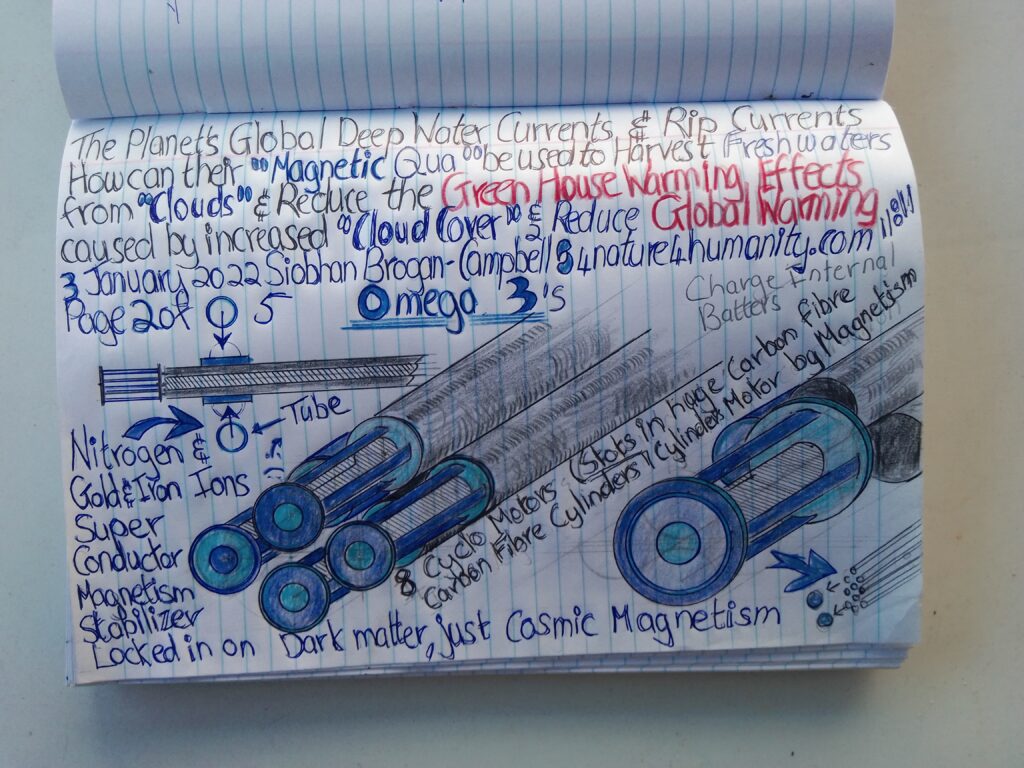 The Planets Global Deep Water Currents & Rip Currents
How can their "Magnetic Qua" be used to Harvest Fresh waters
from "Clouds" & Reduce the Green House Warming Effects
caused by increased "Cloud Cover" & Reduce Global Warming
3 January 2022 Siobhan Brogan-Campbell 4nature4humanity.com
Page 2 of 5 Omega 3's
Charge Internal
Batters
Tube
Nitrogen &
Gold & Iron Ions
Super
Conductor
Magnetism
Stabilizer
Locked in on Dark matter, just Cosmic Magnetism
8 Cyclo Motors (Slots in huge Carbon Fibre
Carbon Fibre Cylinders 1 Cylinders Motor by Magnetism